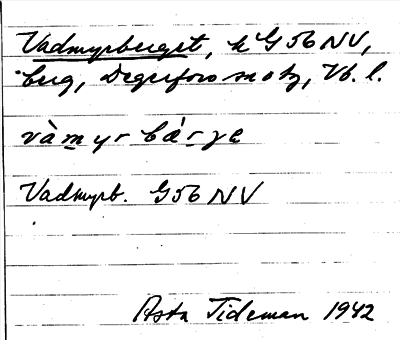 Vadmyrberget, k G 56 NV,
berg, Degerfors sn o tg, Vb. l.
vàmyr bárge
Vadmyrb. G 56 NV
Asta Tideman 1942